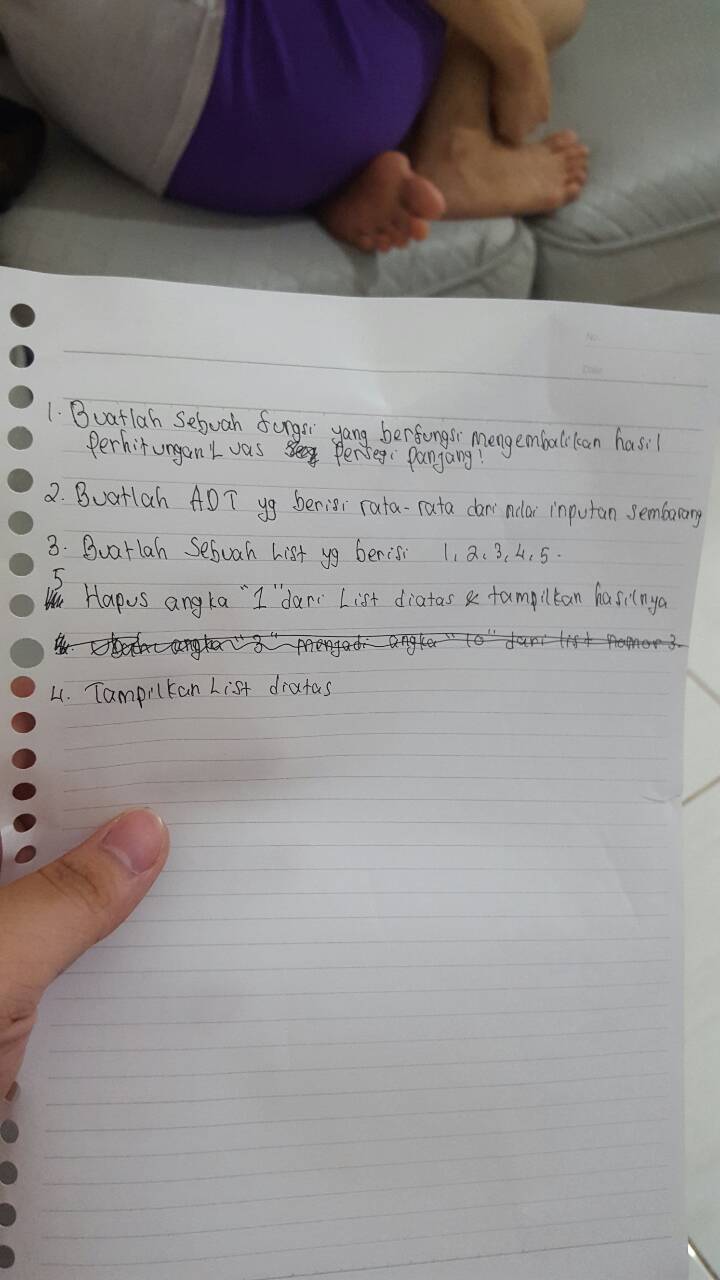 No.
Date
1. Buatlah sebuah fungsi yang berfungsi mengembalikan hasil
perhitungan Luas persegi panjang!
2. Buatlah ADT yg berisi rata-rata dari nilai inputan sembarang
3. Buatlah sebuah List yg berisi 1, 2, 3, 4, 5.
5 Hapus angka "1" dari List diatas & tampilkan hasilnya
Ubah angka "3" menjadi angka "10" dari list nomor 3.
4. Tampilkan List diatas